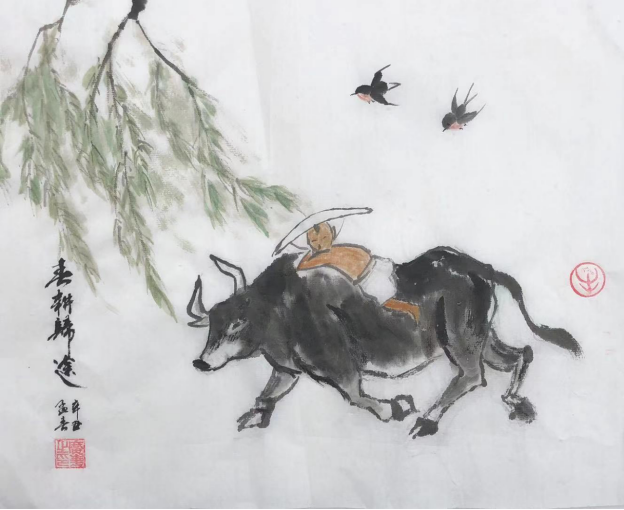 春耕歸途
辛丑
孟春